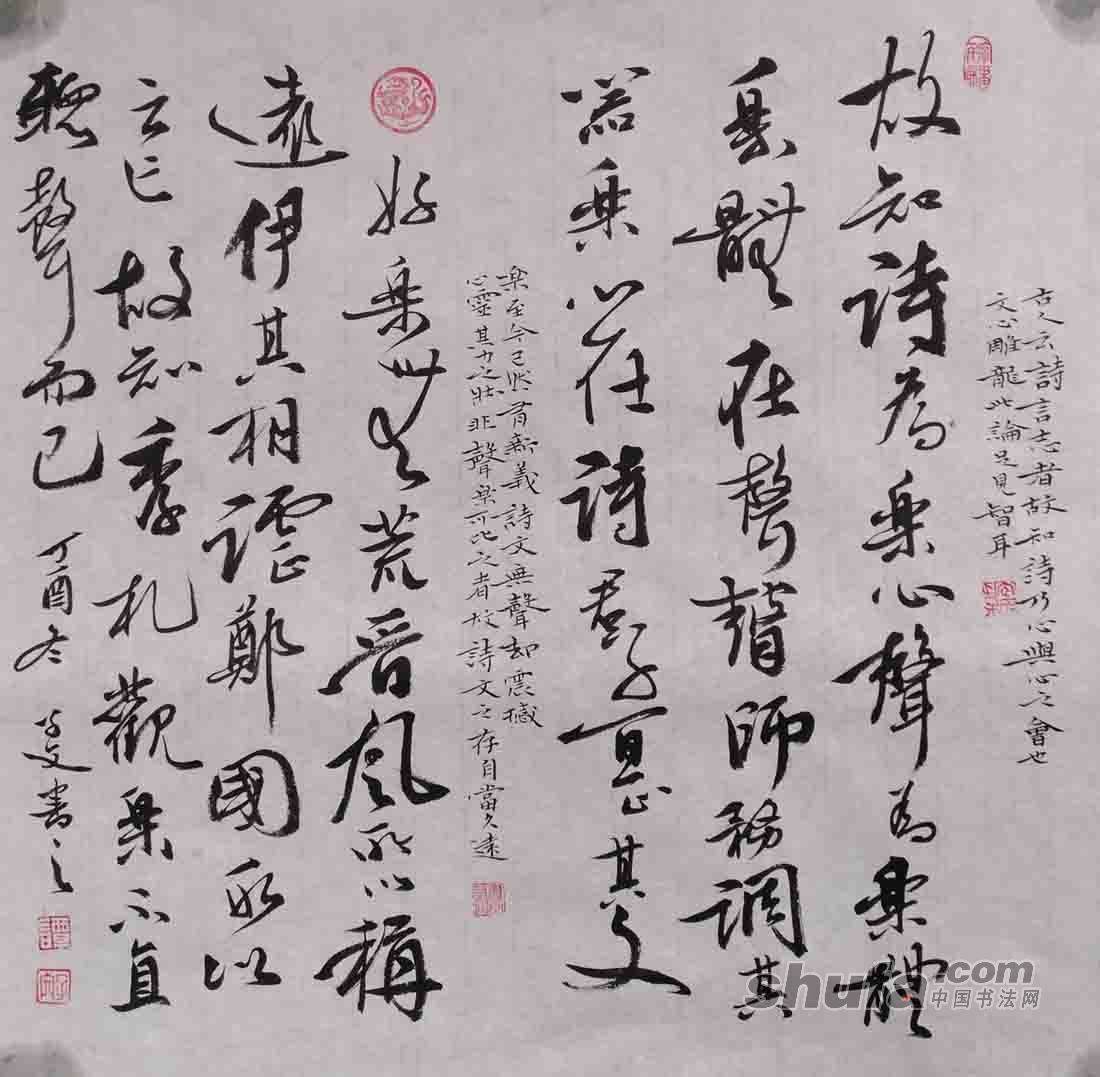 古人云詩言志者故知詩乃心與心之會也
文心雕龍此論足見智耳
故知詩為樂心聲為樂體
樂體在聲瞽師務調其
器樂心在詩君子宜正其文
樂至今已然有新義詩文無聲却震撼
心靈其力之壯非聲樂可比之者故詩文之存自當久遠
好樂無荒晉風所以稱
遠伊其相謔鄭國所以
云亡故知季札觀樂不直
聽聲而已 丁酉冬 書之
shufa.com
中国书法网